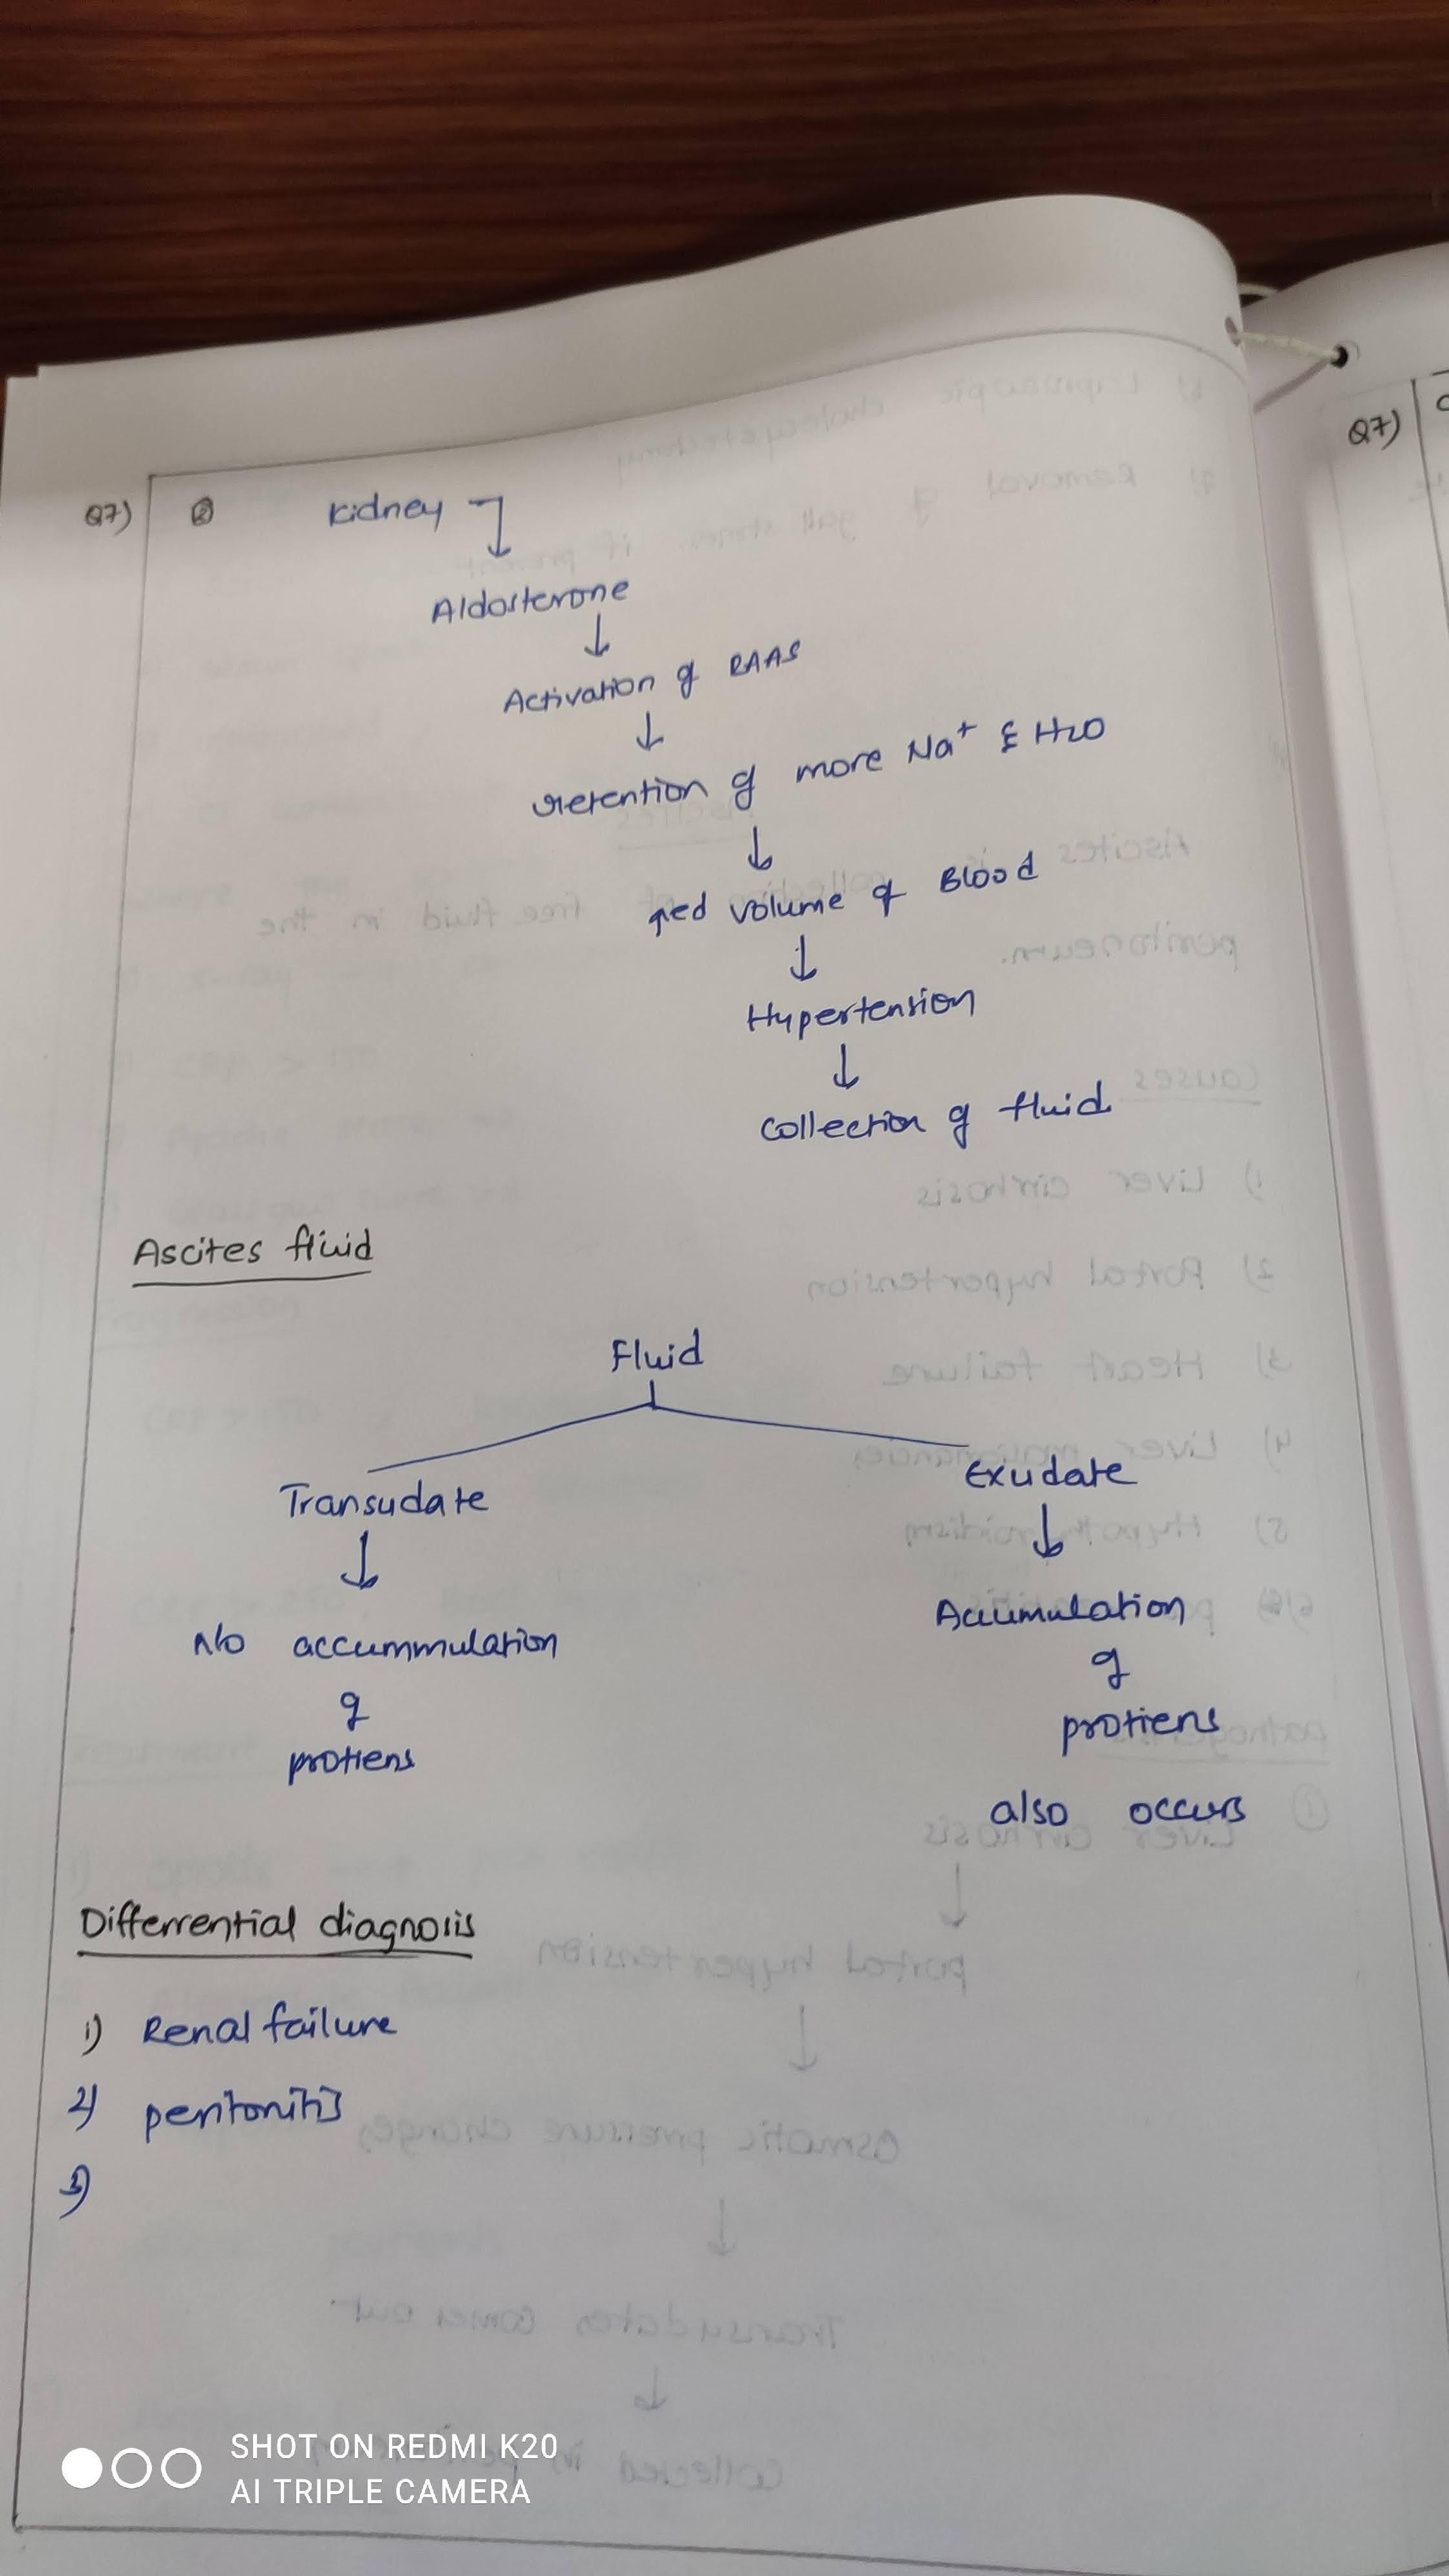 Q7)
② Kidney
↓
Aldosterone
↓
Activation of RAAS
↓
retention of more Na⁺ & H2O
↓
↑ed volume of Blood
↓
Hypertension
↓
collection of fluid
Ascites fluid
Fluid
Transudate
Exudate
↓
↓
No accummulation
of
protiens
Accumulation
of
protiens
also occurs
Differrential diagnosis
1) Renal failure
2) peritonitis
3)
Q7)
SHOT ON REDMI K20
AI TRIPLE CAMERA